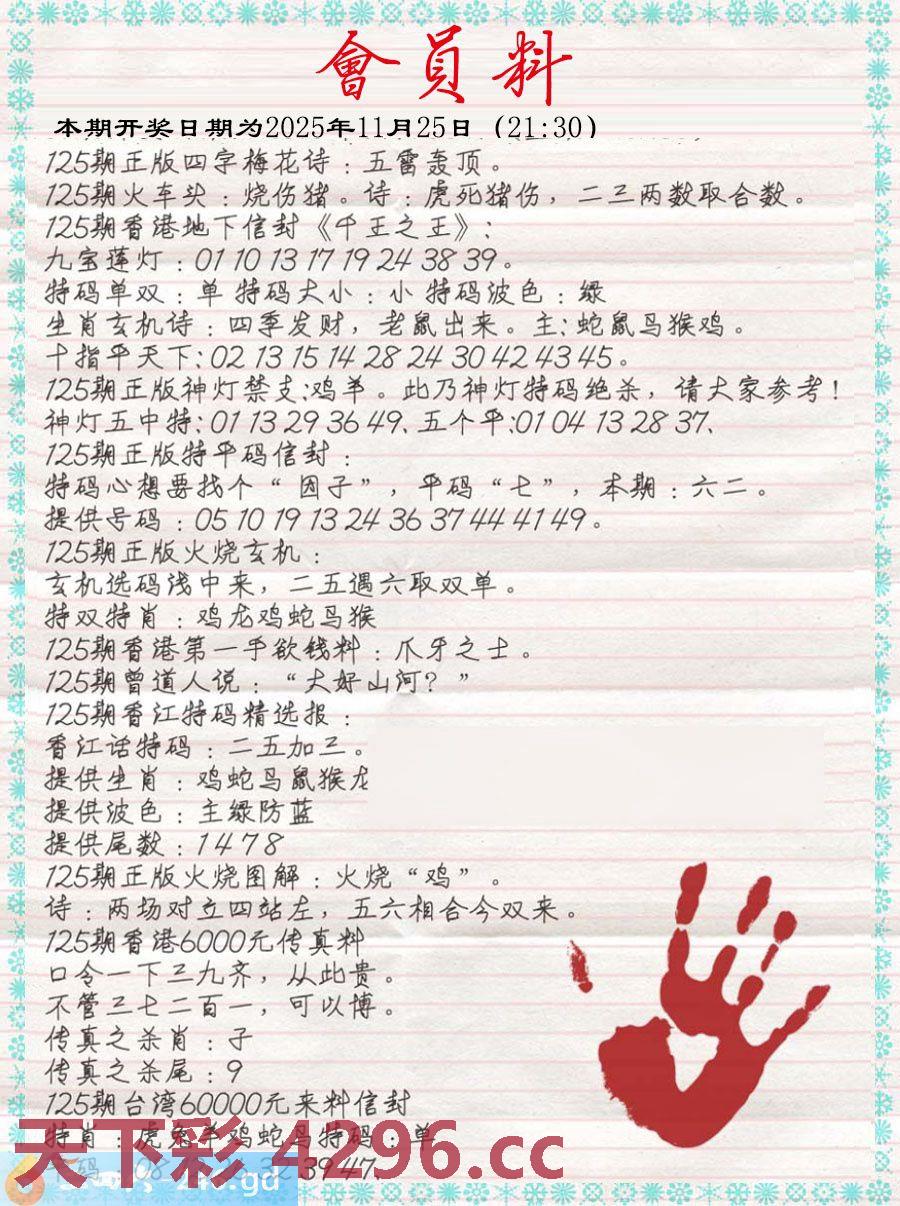 會員料
本期开奖日期为2025年11月25日（21:30）
125期正版四字梅花诗：五雷轰顶。
125期火车头：烧伤猪。诗：虎死猪伤，二三两数取合数。
125期香港地下信封《千王之王》：
九宝莲灯：01 10 13 17 19 24 38 39。
特码单双：单 特码大小：小 特码波色：绿
生肖玄机诗：四季发财，老鼠出来。主：蛇鼠马猴鸡。
十指平天下：02 13 15 14 28 24 30 42 43 45。
125期正版神灯禁支：鸡羊。此乃神灯特码绝杀，请大家参考！
神灯五中特：01 13 29 36 49、五个平：01 04 13 28 37、
125期正版特平码信封：
特码心想要找个“因子”，平码“七”，本期：六二。
提供号码：05 10 19 13 24 36 37 44 41 49。
125期正版火烧玄机：
玄机选码浅中来，二五遇六取双单。
特双特肖：鸡龙鸡蛇马猴
125期香港第一手欲钱料：爪牙之士。
125期曾道人说：“大好山河？”
125期香江特码精选报：
香江话特码：二五加三。
提供生肖：鸡蛇马鼠猴龙
提供波色：主绿防蓝
提供尾数：1 4 7 8
125期正版火烧图解：火烧“鸡”。
诗：两场对立四站左，五六相合今双来。
125期香港6000元传真料
口令一下三九齐，从此贵。
不管三七二百一，可以博。
传真之杀肖：子
传真之杀尾：9
125期台湾60000元来料信封
特肖：虎兔羊鸡蛇马特码：单
天下彩 4296.cc
码：08 39 47、
.gd